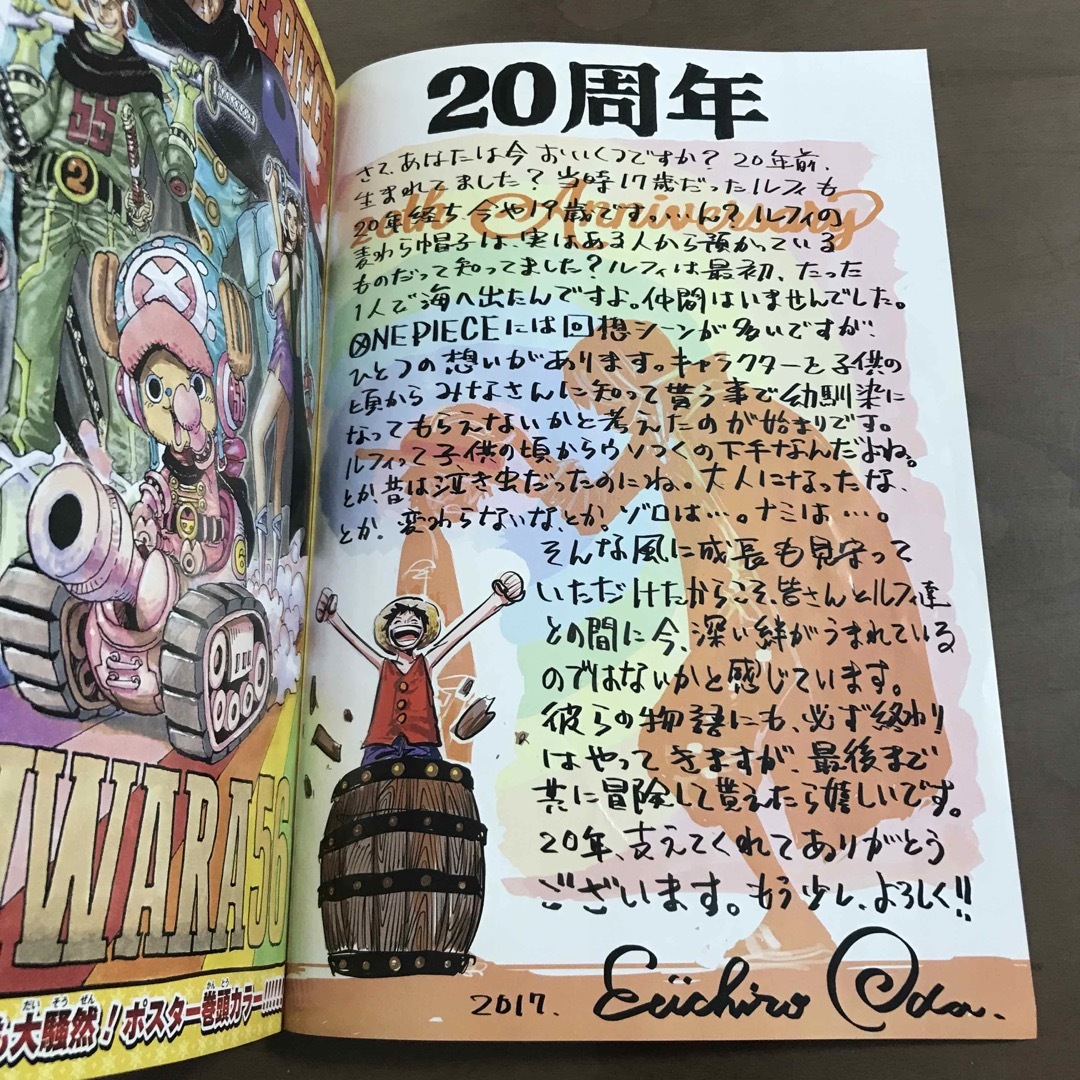 E PIECE
55
2
WARA56
大騒然！ポスター巻頭カラー!!!!!
だいそうぜん
かんとう
20周年
th Anniversary
さて、あなたは今おいくつですか？20年前、
生まれてました？当時17歳だったルフィも
20年経ち今や19歳です。…ん？ルフィの
麦わら帽子は、実はある人から預かっている
ものだって知ってました？ルフィは最初、たった
1人で海へ出たんですよ。仲間はいませんでした。
ONE PIECEには回想シーンが多いですが
ひとつの想いがあります。キャラクターと子供の
頃からみなさんに知って貰う事で幼馴染に
なってもらえないかと考えたのが始まりです。
ルフィって子供の頃からウソつくの下手なんだよね。
とか、昔は泣き虫だったのにね。大人になったな、
とか、変わらないな、とか。ゾロは…。ナミは…。
そんな風に成長も見守って
いただけたからこそ、皆さんとルフィ達
との間に今、深い絆がうまれている
のではないかと感じています。
彼らの物語にも、必ず終わり
はやってきますが、最後まで
共に冒険して貰えたら嬉しいです。
20年、支えてくれてありがとう
ございます。もう少し、よろしく!!
2017. Eiichiro Oda.